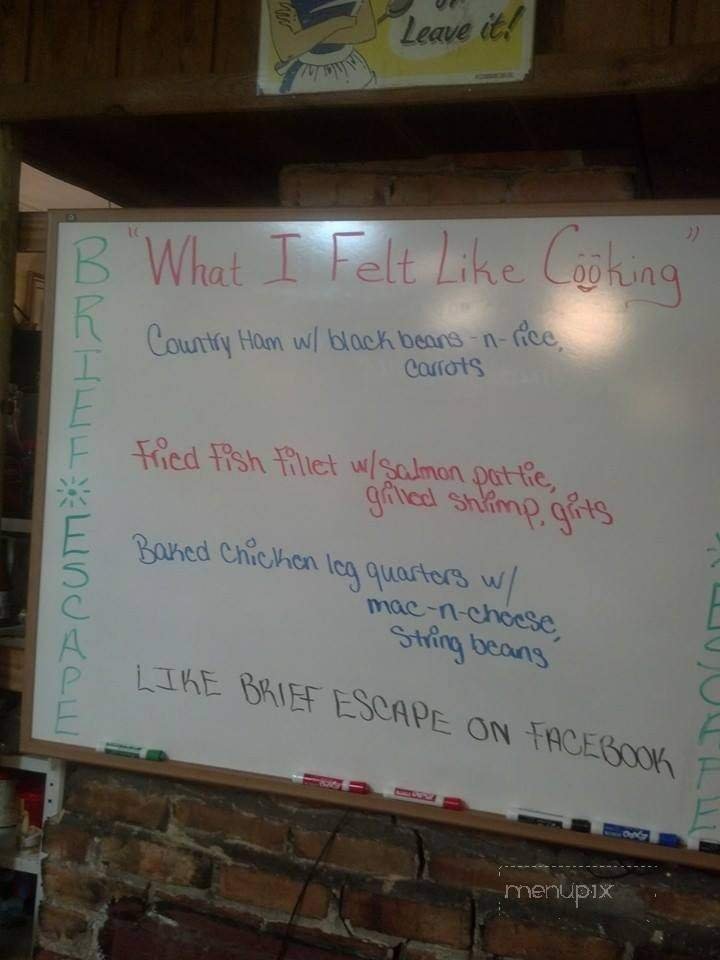 Leave it!
"What I Felt Like Cooking"
BRIEF ESCAPE
Country Ham w/ black beans-n-rice,
carrots
Fried fish fillet w/salmon pattie,
grilled shrimp, grits
Baked chicken leg quarters w/
mac-n-cheese,
string beans
LIKE BRIEF ESCAPE ON FACEBOOK
ESCAPE
menupix